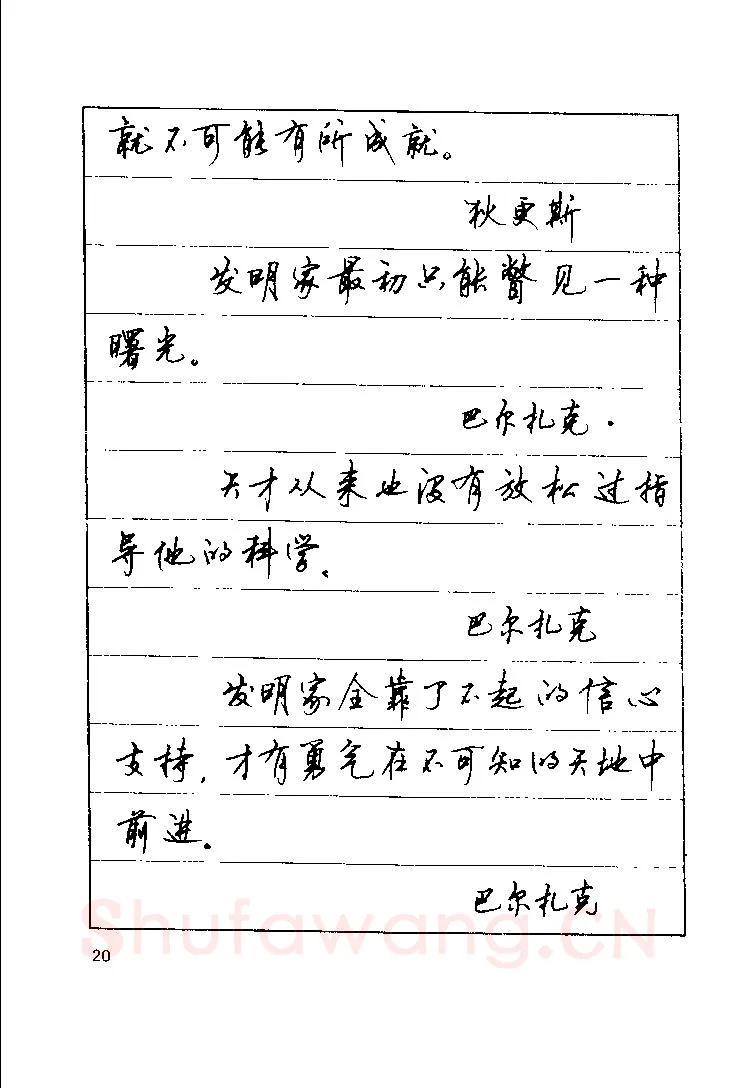 就不可能有所成就。
狄更斯
发明家最初只能瞥见一种
曙光。
巴尔扎克.
天才从来也没有放松过指
导他的科学、
巴尔扎克
发明家全靠了不起的信心
支持,才有勇气在不可知的天地中
前进。
巴尔扎克
Shufawang.CN
20